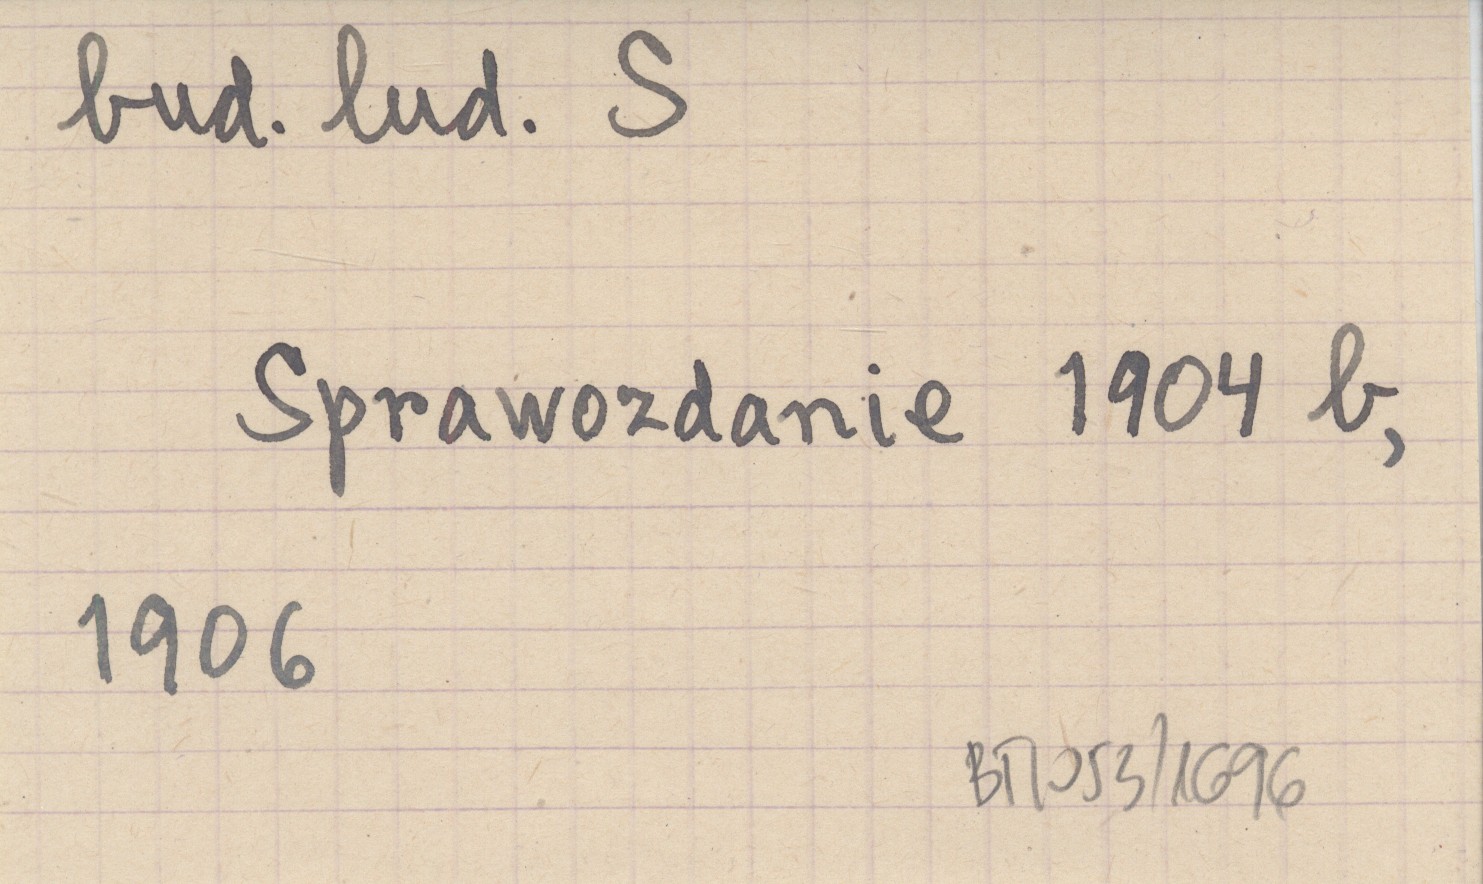 bud. lud. S
Sprawozdanie 1904 b,
1906
ВП053/1696